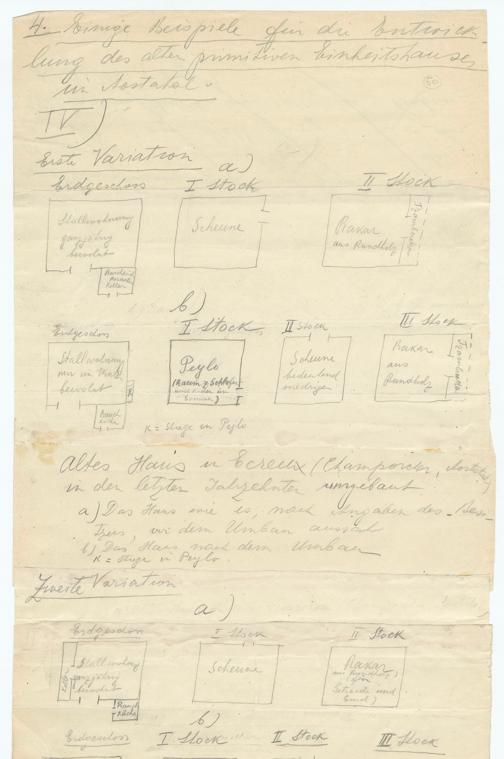 4. Einige Beispiele für die Entwick-
lung des alten primitiven Einheitshauses
im Aostatal.
IV)
Erste Variation a)
Erdgeschoss I Stock II Stock
Stallwohnung
ganzjährig
bewohnt
Keller
Scheune
Rakar
aus Rundholz
b)
Erdgeschoss I Stock II Stock III Stock
Stallwohnung
nur im Winter
bewohnt
Rauch
küche
Peylo
(Raum z. Schlafen
Sommer)
Scheune
bedeutend
niedriger
Rakar
aus
Rundholz
K = Stiege in Peylo
Altes Haus in Ecreux (Champorcher, Aostatal)
in den letzten Jahrzehnten umgebaut
a) Das Haus wie es, nach Angaben des Besi-
tzers, vor dem Umbau aussah
b) Das Haus nach dem Umbau
K = Stiege in Peylo.
Zweite Variation
a)
Erdgeschoss I Stock II Stock
Stallwohnung
ganzjährig
bewohnt
Rauch
küche
Scheune
Rakar
aus Rundholz
Getreide und
b)
Erdgeschoss I Stock II Stock III Stock